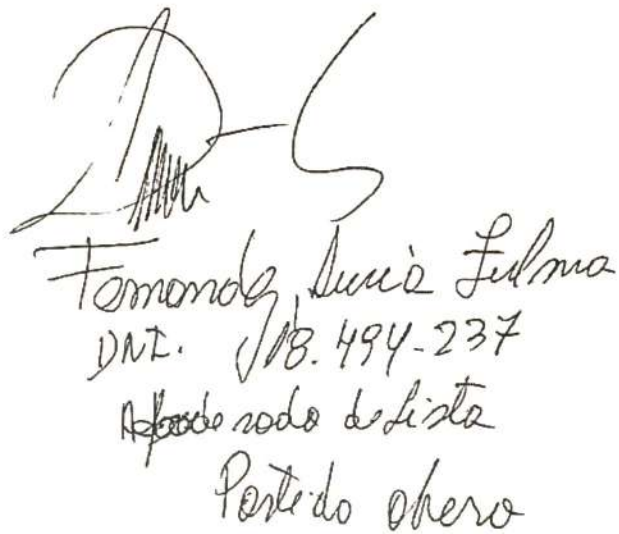 Fernanda Lucía
DNI. 18.494-237
Apoderado de Lista
Partido obrero